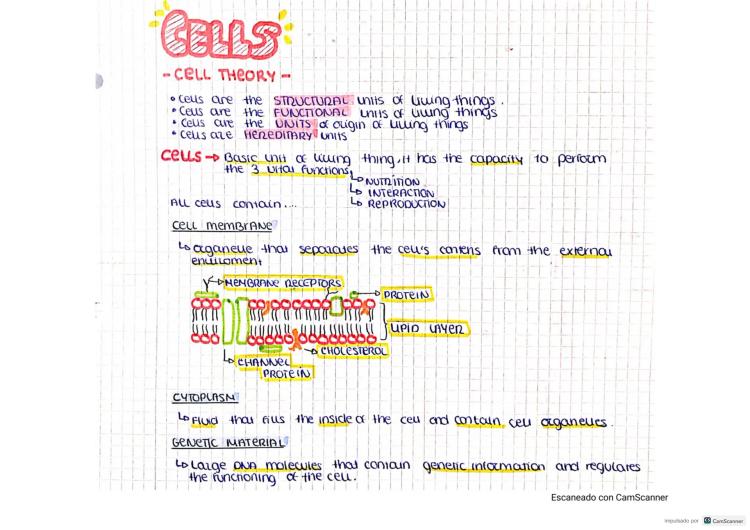 CELLS
- CELL THEORY -
• Cells are the STRUCTURAL units of living things.
• Cells are the FUNCTIONAL units of living things
• Cells are the UNITS of origin of living things
• Cells are HEREDITARY units
CELLS → Basic unit of living thing, it has the capacity to perform
the 3 vital functions
↳ NUTRITION
↳ INTERACTION
ALL cells contain....
↳ REPRODUCTION
CELL MEMBRANE
↳ organelle that separates the cell's contens from the external
enviroment
MEMBRANE RECEPTORS
PROTEIN
LIPID LAYER
CHOLESTEROL
CHANNEL
PROTEIN
CYTOPLASM
↳ Fluid that fills the inside of the cell and contain cell organelles.
GENETIC MATERIAL
↳ Large DNA molecules that contain genetic information and regulates
the functioning of the cell.
Escaneado con CamScanner
impulsado por CS CamScanner